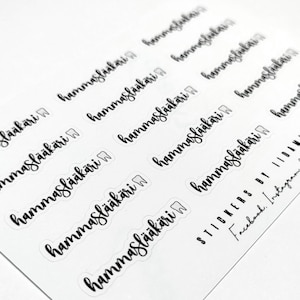 hammaslääkäri
hammaslääkäri
hammaslääkäri
hammaslääkäri
hammaslääkäri
hammaslääkäri
hammaslääkäri
hammaslääkäri
hammaslääkäri
hammaslääkäri
hammaslääkäri
hammaslääkäri
hammaslääkäri
STICKERS BY
Facebook, Instagram